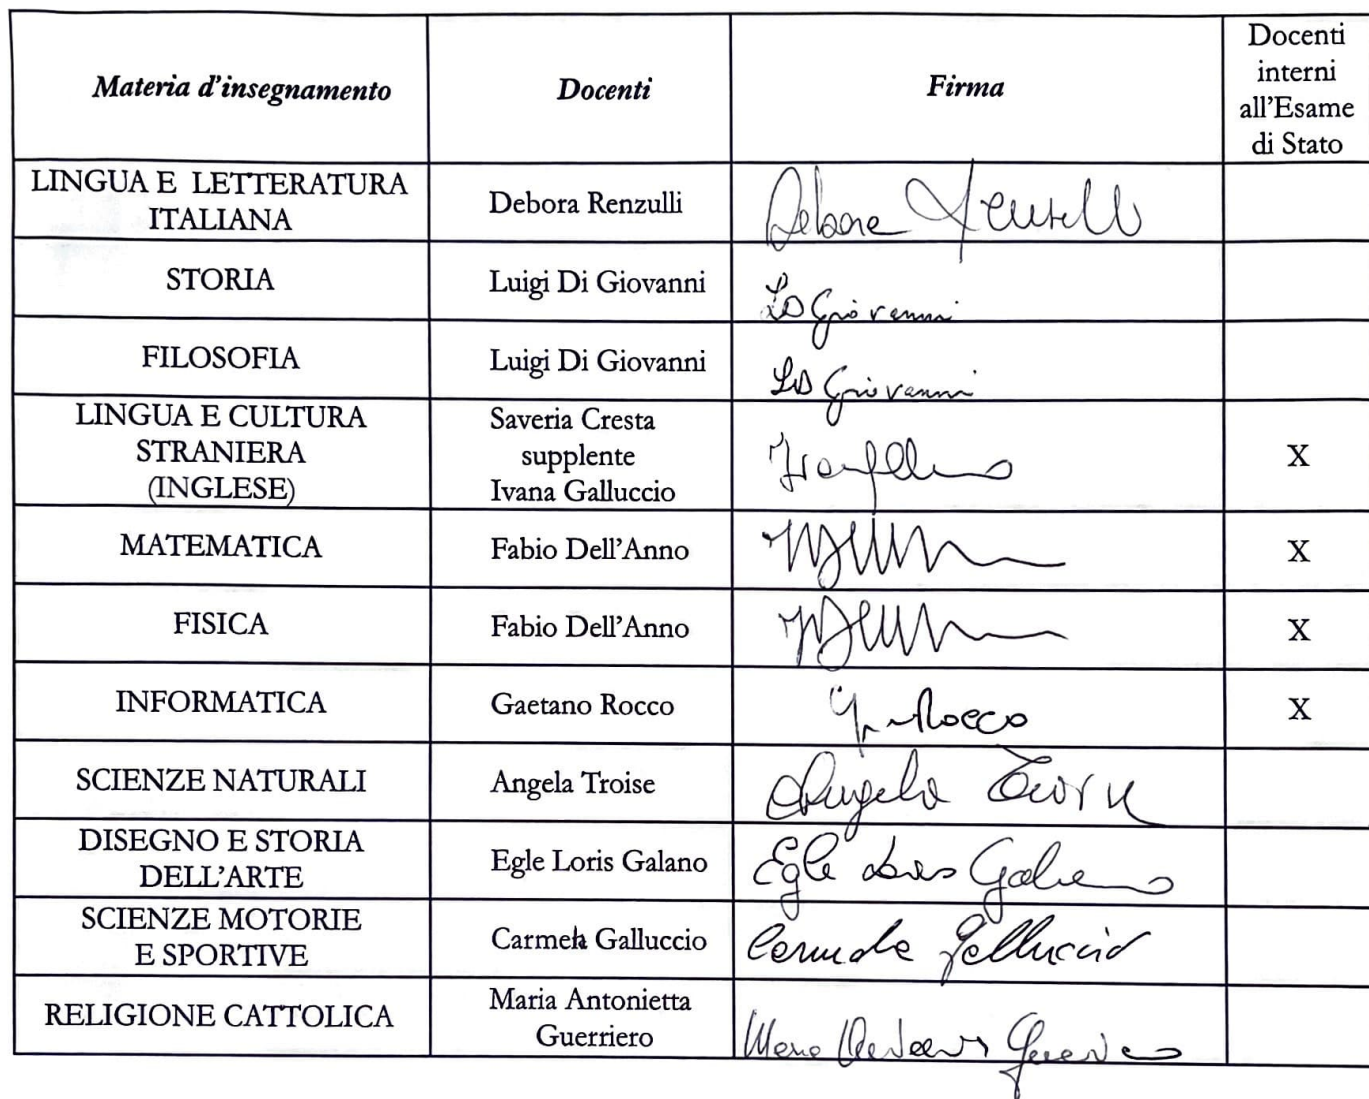 Materia d'insegnamento Docenti Firma Docenti
interni
all'Esame
di Stato
LINGUA E LETTERATURA
ITALIANA
Debora Renzulli
STORIA Luigi Di Giovanni LD Giovanni
FILOSOFIA Luigi Di Giovanni LD Giovanni
LINGUA E CULTURA
STRANIERA
(INGLESE)
Saveria Cresta
supplente
Ivana Galluccio
X
MATEMATICA Fabio Dell'Anno X
FISICA Fabio Dell'Anno X
INFORMATICA Gaetano Rocco Rocco X
SCIENZE NATURALI Angela Troise Angela
DISEGNO E STORIA
DELL'ARTE
Egle Loris Galano Egle Loris Galano
SCIENZE MOTORIE
E SPORTIVE
Carmela Galluccio Carmela Galluccio
RELIGIONE CATTOLICA
Maria Antonietta
Guerriero